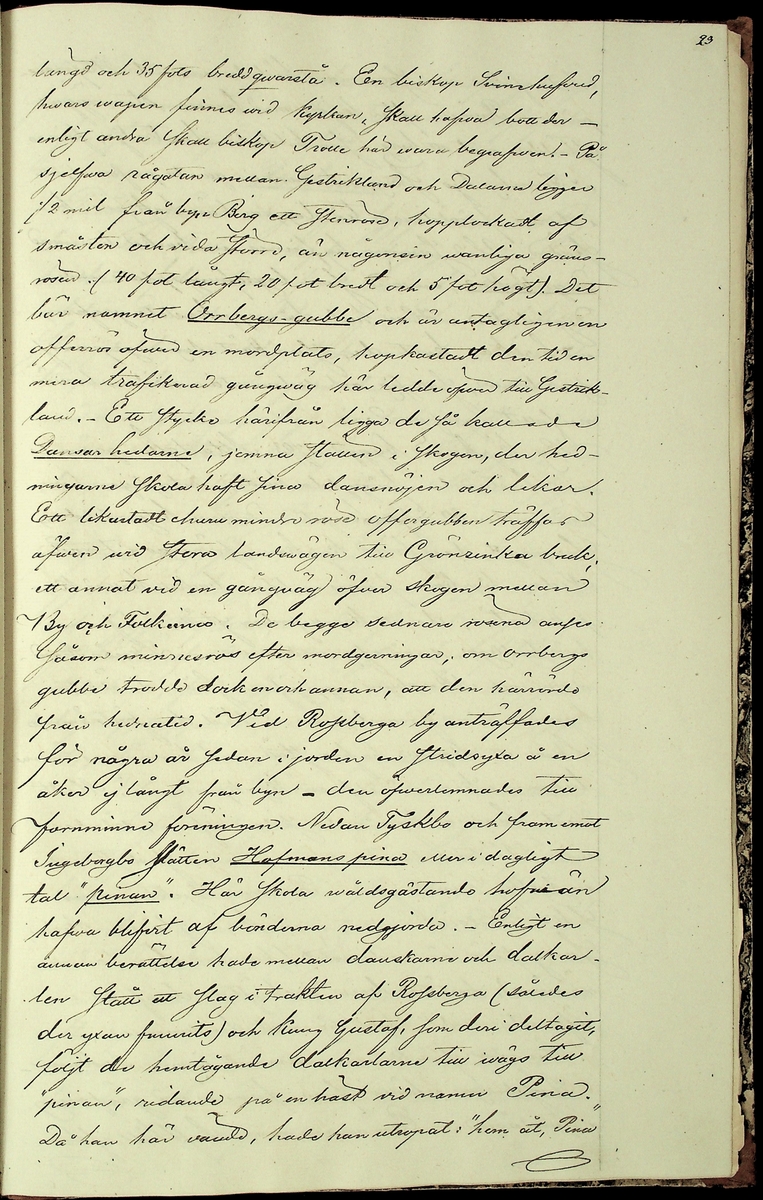 23
längd och 35 fots bredd qwarstå. En biskop Svinhufvud,
hwars wapen finnes wid kyrkan, skall hafwa bott der –
enligt andra skall biskop Trolle här wara begrafwen. – På
sjelfwa rågatan mellan Gestrikland och Dalarne ligger
1/2 mil från byn Berg ett stenröse, hopplockadt af
småsten och vida större, än någonsin wanliga gräns-
rösen. (40 fot långt, 20 fot bredt och 5 fot högt). Det
bär namnet Orrbergs-gubbe och är antagligen en
offerrös öfwer en mordplats, hopkastadt den tid en
mera trafikerad gångwäg här ledde öfwer till Gestrik-
land. – Ett stycke härifrån ligga de så kallade
Dansarhedarne, jemna ställen i skogen, der hed-
ningarne skola haft sina dansnöjen och lekar.
Ett likastadt ehuru mindre röse offergubben träffas
äfwen wid stora landswägen till Grönsinka bruk,
ett annat vid en gångväg öfver skogen mellan
By och Folkärna. De begge sednare rösena anses
såsom minnesrös efter mordgerningar, om Orrbergs
gubbe trodde dock en och annan, att den härrörde
från hednatid. Vid Rossberga by anträffades
för några år sedan i jorden en stridsyxa å en
åker ej långt från byn – den öfwerlemnades till
fornminne föreningen. Nedan Tyskbo och fram emot
Ingeborgbo slätten Hofmans pina eller i dagligt
tal "pinan". Här skola wåldsgästande hofmän
hafwa blifvit af bönderna nedgjorda. – Enligt en
annan berättelse hade mellan danskarne och dalkar-
len stått ett slag i trakten af Rossberga (således
der yxan funnits) och kung Gustaf, som deri deltagit,
följt de hemtågande dalkarlarne till wägs till
"pinan", ridande på en häst vid namn Pina.
Då han här vände, hade han utropat: "hem åt, Pina"